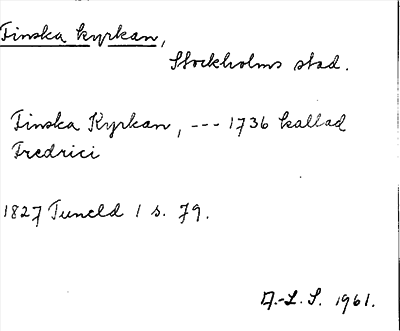 Finska kyrkan,
Stockholms stad.
Finska Kyrkan, --- 1736 kallad
Fredrici
1827 Tuneld 1 s. 79.
A.-L. S. 1961.